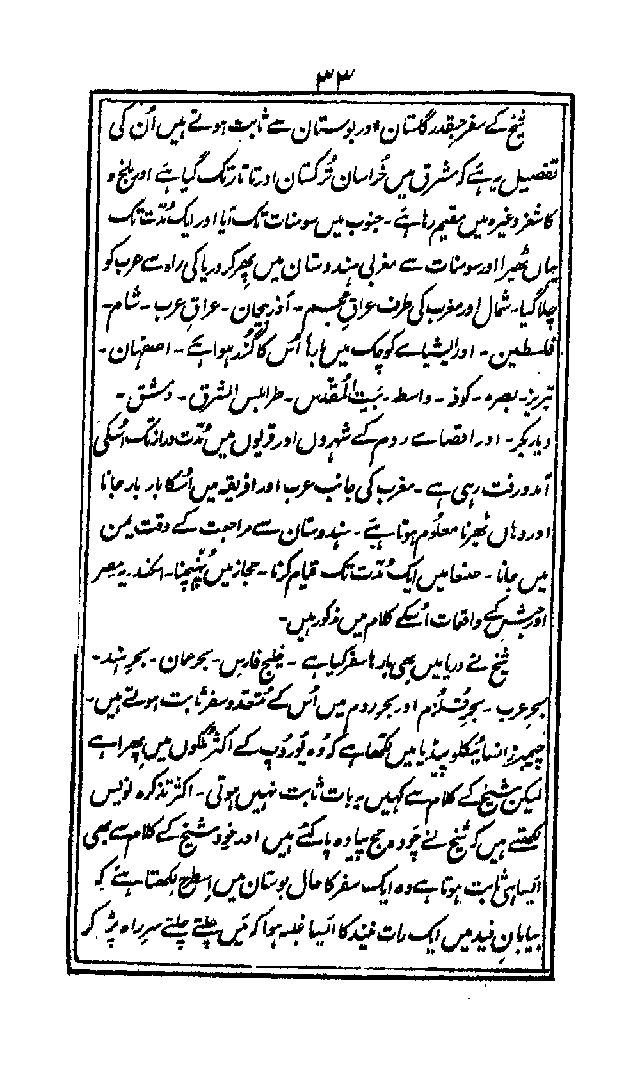 ۳۳
شیخ کے سفر جسقدر گلستان اور بوستان سے ثابت ہوتے ہیں اُن کی
تفصیل یہ ہے کہ مشرق میں خُراسان تُرکستان اور تاتار تک گیا ہے اور بلخ و
کاشغر وغیرہ میں مقیم رہا ہے ۔ جنوب میں سومنات تک آیا اور ایک مُدّت تک
یہاں ٹھیرا اور سومنات سے مغربی ہندوستان میں پھر کر دریا کی راہ سے عرب کو
چلا گیا ۔ شمال اور مغرب کی طرف عراقِ عجم ۔ آذربیجان ۔ عراقِ عرب ۔ شام ۔
فلسطین ۔ اور ایشیاے کوچک میں بارہا اُس کا گُذر ہوا ہے ۔ اصفہان ۔
تبریز ۔ بصرہ ۔ کوفہ ۔ واسط ۔ بَیتُ المُقدّس ۔ طرابلس الشرق ۔ دمشق ۔
دیاربکر ۔ اور اقصاے روم کے شہروں اور قریوں میں مُدّت دراز تک اُسکی
آمد و رفت رہی ہے ۔ مغرب کی جانب عرب اور افریقہ میں اُسکا بار بار جانا
اور وہاں ٹھہرنا معلُوم ہوتا ہے ۔ ہندوستان سے مراجعت کے وقت یمن
میں جانا ۔ صنعا میں ایک مُدّت تک قیام کرنا ۔ حجاز میں پُہنچنا ۔ اسکندریہ مصر
اور حبش کے واقعات اُسکے کلام میں مذکور ہیں ۔
شیخ نے دریا میں بھی بارہا سفر کیا ہے ۔ خلیج فارس ۔ بحرِ عمان ۔ بحرِ ہند ۔
بحرِ عرب ۔ بحرِ قُلزُم اور بحرِ روم میں اُس کے مُتعدد سفر ثابت ہوتے ہیں ۔
چیمبرز انسائیکلوپیڈیا میں لکھا ہے کہ وُہ یُورُوپ کے اکثر ملکوں میں پھرا ہے
لیکن شیخ کے کلام سے کہیں یہ بات ثابت نہیں ہوتی ۔ اکثر تذکرہ نویس
لکھتے ہیں کہ شیخ نے چودہ حج پیادہ پا کئے ہیں اور خود شیخ کے کلام سے بھی
ایسا ہی ثابت ہوتا ہے وہ ایک سفر کا حال بوستان میں اِسطرح لکھتا ہے کہ
بیابانِ فید میں ایک رات نیند کا ایسا غلبہ ہوا کہ میَں چلتے چلتے سرِ راہ پڑ کر